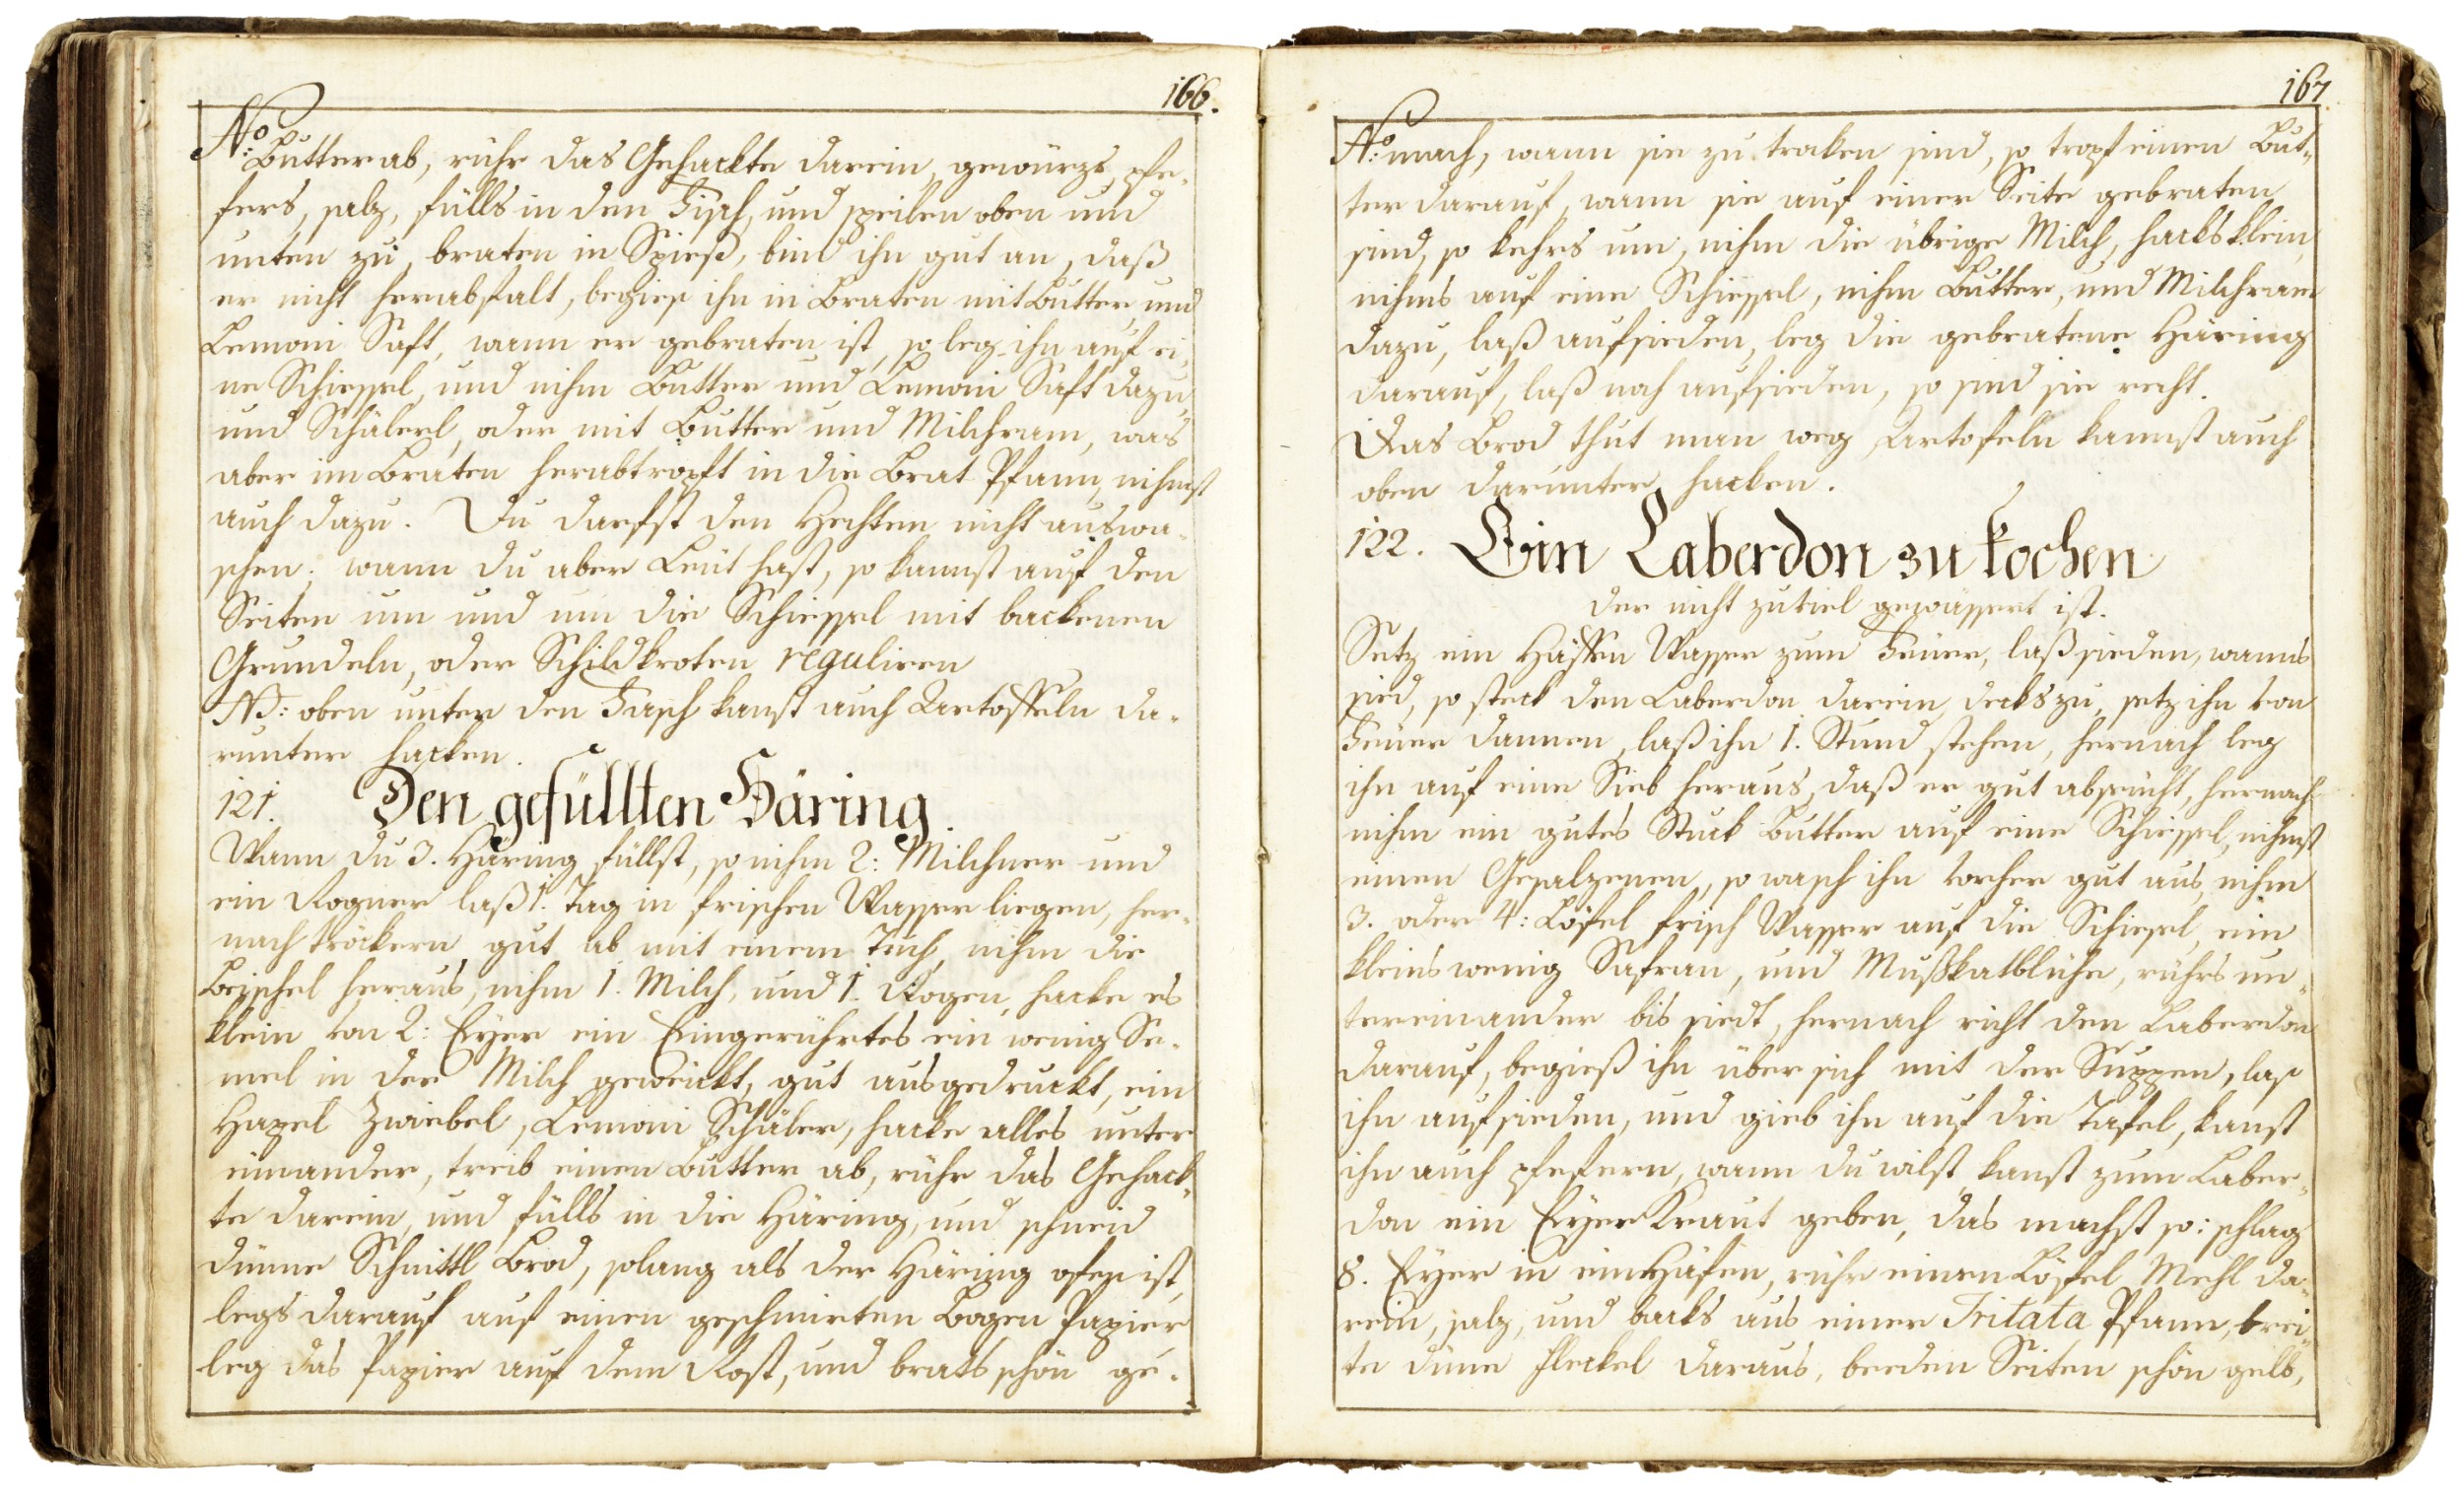 166.
No: Butter ab, rühr das Gehackte darein, gewürzs, pfe-
fers, salz, fülls in den Fisch, und speilen oben und
unten zu, braten in Spieß, bind ihn gut an, daß
er nicht herabfalt, begies ihn in Braten mit Butter und
Lemoni Saft, wann er gebraten ist, so leg ihn auf ei-
ne Schiessel, und nihm Butter und Lemoni Saft dazu
und Schälerl, oder mit Butter und Milchram, was
aber im Braten herabtropft in die Brat Pfann, nihmst
auch dazu. Du darfst den Hechten nicht auswa-
schen; wann du aber Leut hast, so kannst auf den
Seiten um und um die Schiessel mit backenen
Grundeln, oder Schildkroten reguliren
NB: oben unter den Fasch kanst auch Artoffeln da-
runter hacken.
121. Den gefüllten Häring.
Wann du 3. Häring füllst, so nihm 2: Milchner und
ein Rogner laß 1. Tag in frischen Wasser liegen, her-
nach tröckern gut ab mit einem Tuch, nihm die
Beischel heraus, nihm 1. Milch, und 1. Rogen, hacke es
klein von 2: Eyer ein Eingerührtes ein wenig Se-
mel in der Milch geweickt, gut ausgedruckt, ein
Hapel Zwiebel, Lemoni Schäler, hacke alles unter
einander, treib einen Butter ab, rühr das Gehack-
te darein, und fülls in die Häring, und schneid
dünne Schnittl Brod, solang als der Häring ofen ist,
legs darauf auf einen geschmirten Bogen Papier
leg das Papier auf dem Rost, und brats schön ge-
167
No: mach, wann sie zu trocken sind, so tropf einen But-
ter darauf, wann sie auf einer Seite gebraten
sind, so kehrs um, nihm die übrige Milch, hacks klein,
nihms auf eine Schiessel, nihm Butter, und Milchram
dazu, laß aufsieden, leg die gebratene Häring
darauf, laß noch aufsieden, so sind sie recht.
Das Brod thut man weg, Artofeln kannst auch
oben darunter hacken.
122. Ein Laberdon zu kochen
der nicht zuviel gewässert ist.
Setz ein Häffen Wasser zum Feuer, laß sieden, wanns
sied, so steck den Laberdon darein, decks zu, setz ihn von
Feuer dannen, laß ihn 1. Stund stehen, hernach leg
ihn auf eine Sieb heraus, daß er gut abseicht, hernach
nihm ein gutes Stuck Butter auf eine Schiessel, nihmst
einen Gesalzenen, so wasch ihn vorher gut aus, nihm
3. oder 4: Löfel frisch Wasser auf die Schiesel, ein
kleins wenig Safran, und Mußkatblühe, rührs un-
tereinander bis siedt, hernach richt den Laberdon
darauf, begieß ihn über sich mit der Suppen, las
ihn aufsieden, und gieb ihn auf die Tafel, kanst
ihn auch pfefern, wann du wilst, kanst zum Laber-
don ein Eyer Kraut geben, das machst so: schlag
8. Eyer in ein Häfen, rühr einen Löfel Mehl da-
rein, salz, und backs aus einer Fritata Pfann, brei-
te dünn Fleckel daraus, beeden Seiten schön gelb,